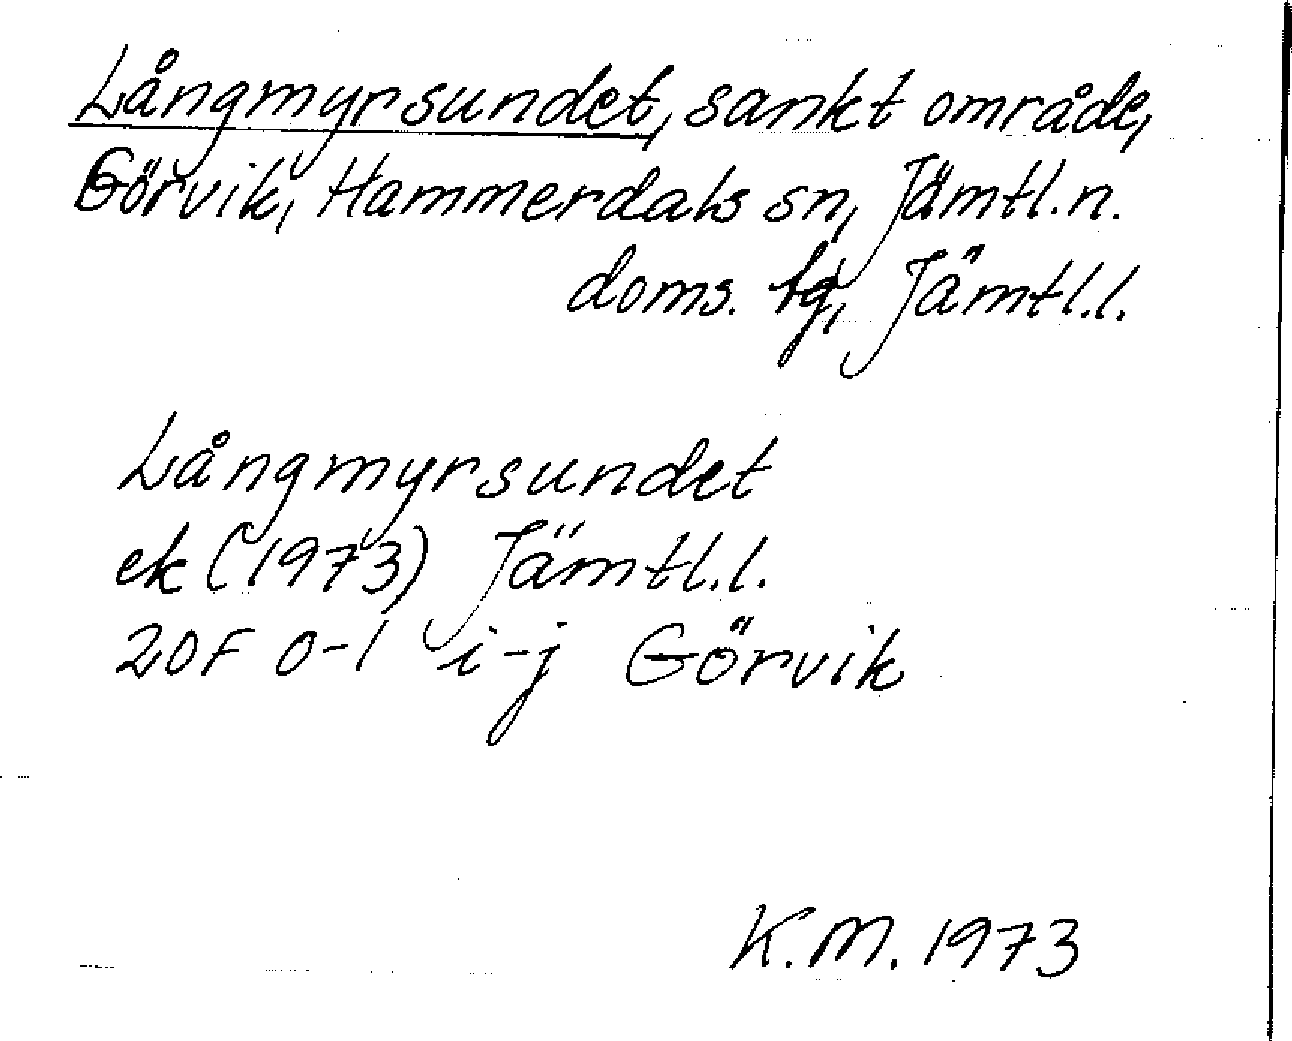 Långmyrsundet, sankt område,
Görvik, Hammerdals sn, Jämtl.n.
doms. tg, Jämtl.l.
Långmyrsundet
ek (1973) Jämtl.l.
20F 0-1 i-j Görvik
K.M. 1973